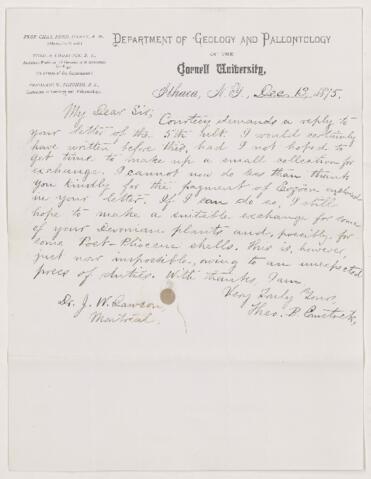 PROF. CHAS. FRED. HARTT, A. M.
THEO. B. COMSTOCK, B. S.
DEPARTMENT OF GEOLOGY AND PALEONTOLOGY
OF THE
Cornell University,
Ithaca, N. Y., Dec. 13, 1875.
My Dear Sir,
Courtesy demands a reply to
your letter of the 5th ult. I would certainly
have written before this, had I not hoped to
get time to make up a small collection for
exchange. I cannot now do less than thank
you kindly for the fragment of Eozoön enclosed
in your letter. If I can do so, I still
hope to make a suitable exchange for some
of your Devonian plants and, possibly, for
some Post-Pliocene shells. This is, however,
just now impossible, owing to an unexpected
press of duties. With thanks, I am
Very Truly Yours,
Theo. B. Comstock,
Dr. J. W. Dawson,
Montréal.